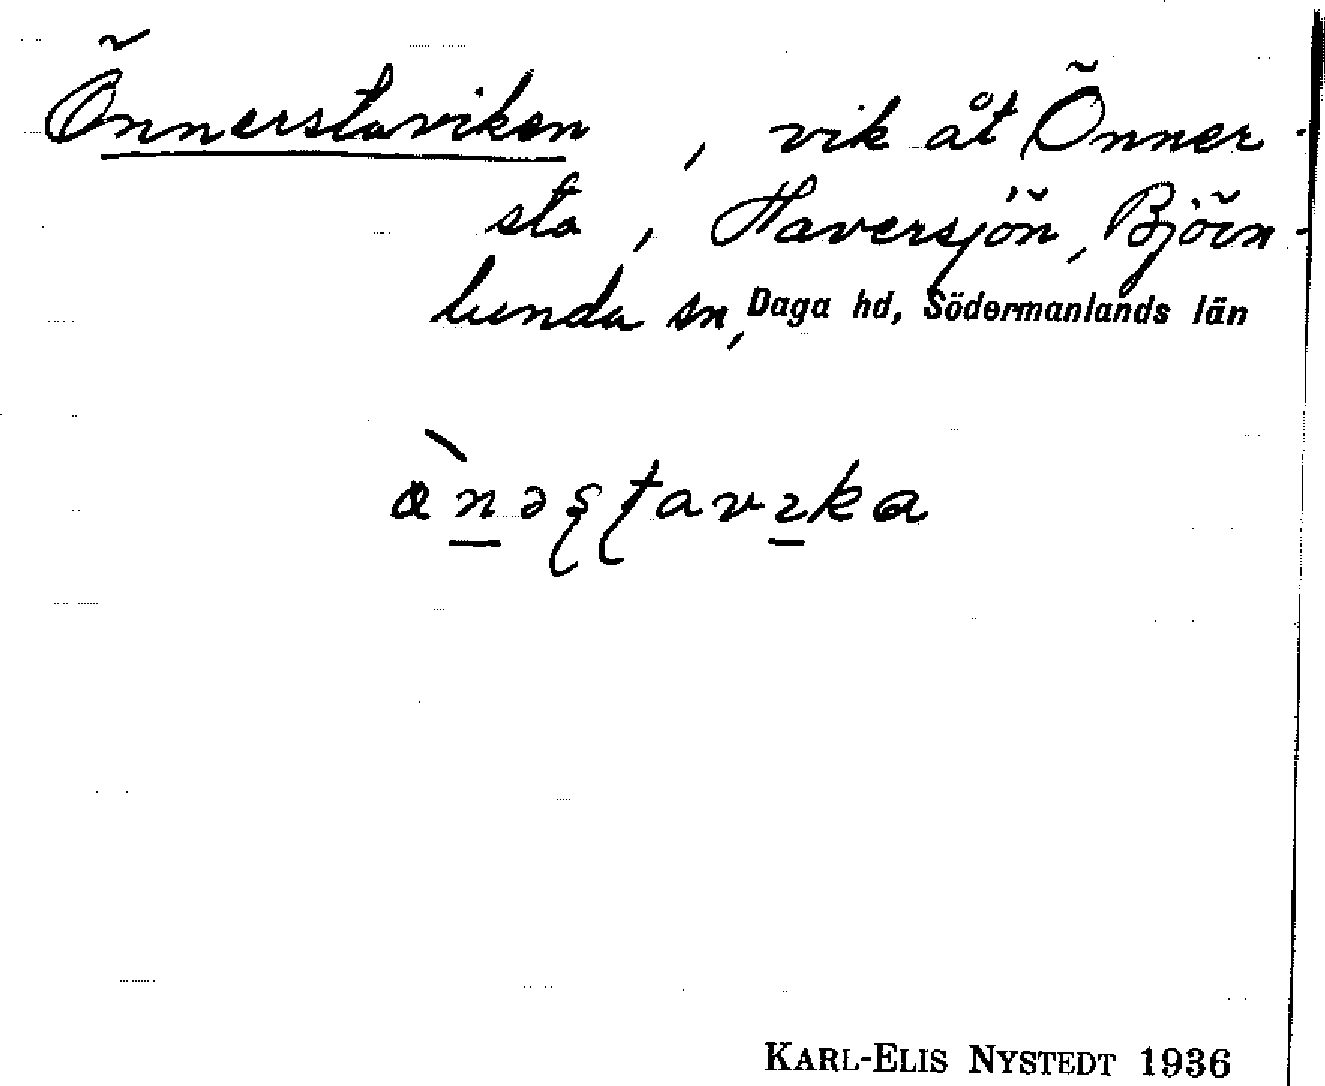 Önnerstaviken, vik åt Önner-
sta, Haversjön, Björn-
lunda sn, Daga hd, Södermanlands län
KARL-ELIS NYSTEDT 1936